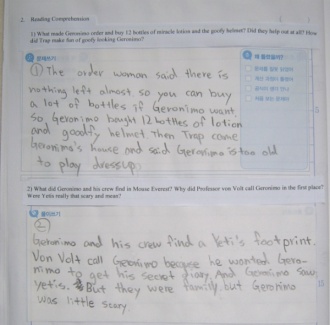 2. Reading Comprehension
1) What made Geronimo order and buy 12 bottles of miracle lotion and the goofy helmet? Did they help out at all? How
did Trap make fun of goofy looking Geronimo?
문제쓰기
① The order woman said there is
nothing left almost, so you can buy
a lot of bottles if Geronimo want
So, Geronimo bought 12 bottles of lotion
and goodfiy helmet Then Trap came
Geronimo's house and said Geronimo is too old
to play dressup.
2) What did Geronimo and his crew find in Mouse Everest? Why did Professor von Volt call Geronimo in the first place?
Were Yetis really that scary and mean?
②
Geronimo and his crew find a Yeti's footprint.
Von Volt call Geronimo because he wanted Gero-
nimo to get his secret diary. And Geronimo saw
yetis. But they were family but Geronimo
was little scary